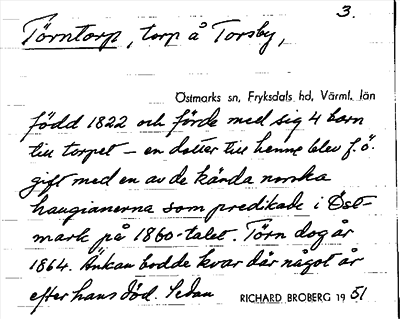 3.
Törntorp, torp å Torsby,
Östmarks sn, Fryksdals hd, Värml. län
född 1822 och förde med sig 4 barn
till torpet – en dotter till henne blev f.ö.
gift med en av de kända norska
haugianerna som predikade i Öst-
mark på 1860-talet. Törn dog år
1864. Änkan bodde kvar där något år
efter hans död. Sedan
RICHARD BROBERG 1951